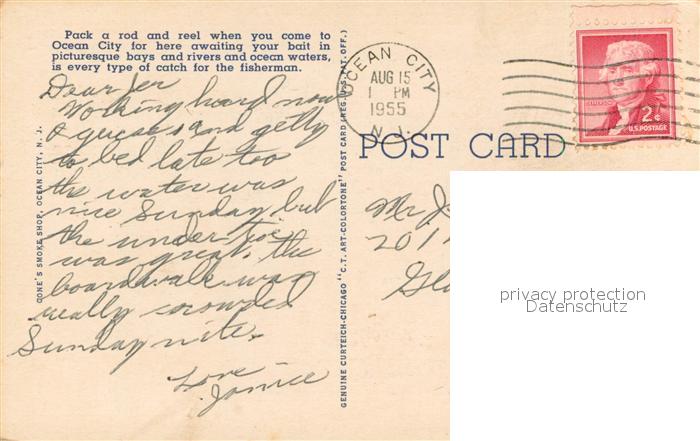 Pack a rod and reel when you come to
Ocean City for here awaiting your bait in
picturesque bays and rivers and ocean waters,
is every type of catch for the fisherman.
Dear Jer
Working hard now
I guess and getty
to bed late too
the water was
nice Sunday but
the under toe
was great. the
boardwalk was
really crowded
Sunday nite.
Love
Janice
CONE'S SMOKE SHOP, OCEAN CITY, N. J.
GENUINE CURTEICH-CHICAGO "C. T. ART-COLORTONE" POST CARD (REG. U. S. PAT. OFF.)
OCEAN CITY
AUG 15
1 PM
1955
N. J.
POST CARD
JEFFERSON
2¢
U.S. POSTAGE
Mr J
201
Gl
privacy protection
Datenschutz